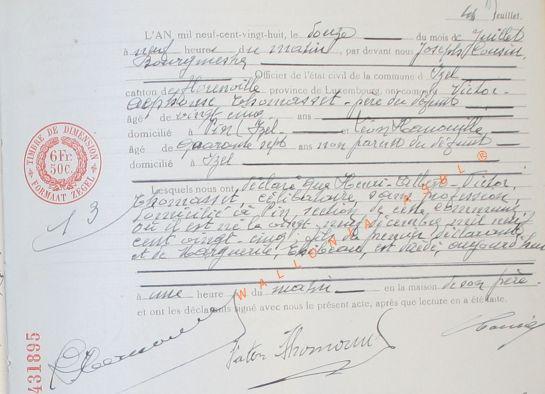 Feuillet.
L'AN, mil neuf-cent-vingt-huit, le douze du mois de Juillet
à neuf heures du matin, par devant nous Joseph Cousin,
Bourgmestre
Officier de l'état civil de la commune d' Izel
canton de Florenville province de Luxembourg, ont comparu Victor-
Alphonse Thomasset - père du défunt
âgé de vingt cinq ans
domicilié à Pin Izel et Léon
âgé de quarante sept ans non parent du défunt
domicilié à Izel
Lesquels nous ont déclaré que Henri Victor,
Thomasset, célibataire, sans profession,
domicilié à Pin, section de cette commune,
où il est né le vingt décembre mil neuf
cent vingt-cinq, fils du premier déclarant
et de Marguerite, est décédé, aujourd'hui
à une heure du matin en la maison de son père
et ont les déclarants signé avec nous le présent acte, après que lecture en a été faite.
TIMBRE DE DIMENSION
6 Fr.
50 C.
FORMAAT ZEGEL
13
431895
WALLONIA ®